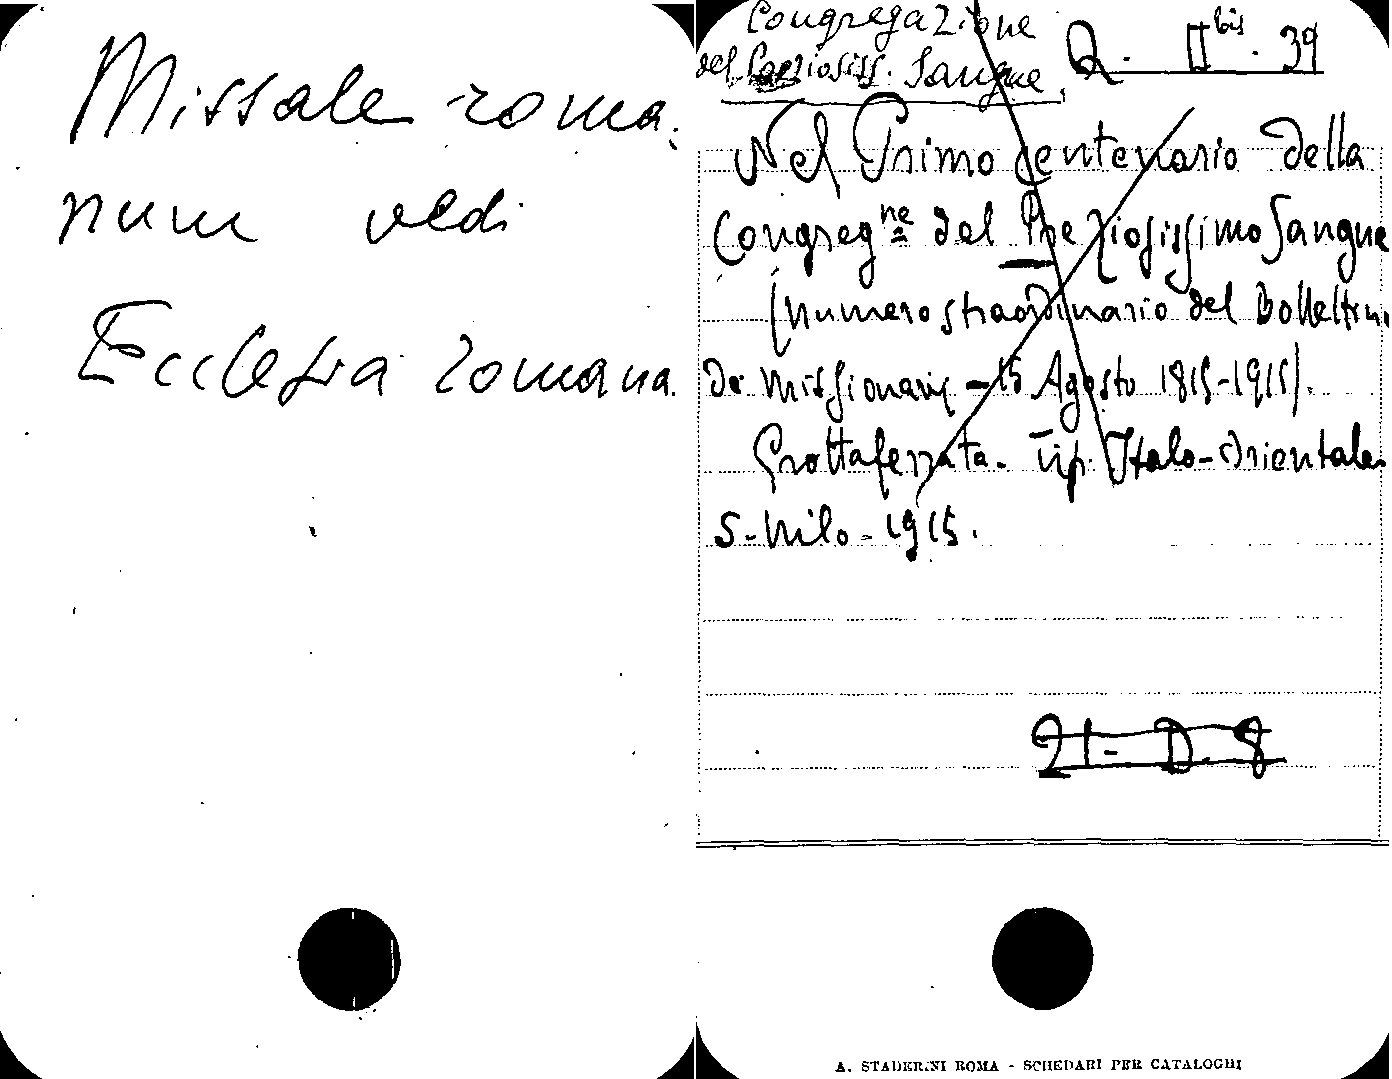 Missale roma-
num vedi
Ecclesia romana.
Congregazione
del Preziosiss. Sangue
Q. II bis. 39
Nel Primo Centenario della
Congreg.ne del Preziosissimo Sangue
(numero straordinario del Bollettino
dei Missionarii - 15 Agosto 1815-1915).
Grottaferrata. Tip. Italo-Orientale
S. Nilo - 1915.
21. D. 8
A. STADERINI ROMA - SCHEDARI PER CATALOGHI